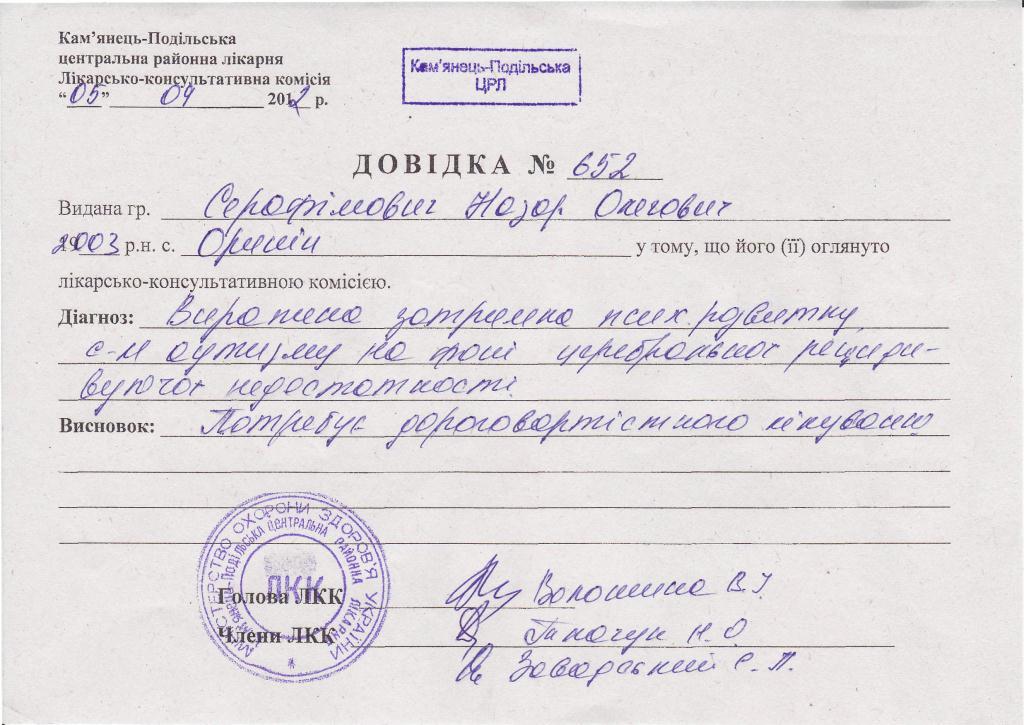 Кам’янець-Подільська
центральна районна лікарня
Лікарсько-консультативна комісія
“05” 09 2012 р.
Кам’янець-Подільська
ЦРЛ
ДОВІДКА № 652
Видана гр. Серафімович Назар Олегович
2003 р.н. с. Оринін у тому, що його (її) оглянуто
лікарсько-консультативною комісією.
Діагноз: Виражена затримка псих. розвитку
с-м аутизму на фоні церебральної
недостатності.
Висновок: Потребує дороговартістного лікування
МІНІСТЕРСТВО ОХОРОНИ ЗДОРОВ’Я УКРАЇНИ
КАМ’ЯНЕЦЬ-ПОДІЛЬСЬКА ЦЕНТРАЛЬНА РАЙОННА ЛІКАРНЯ
ЛКК
Голова ЛКК Волошина В.І.
Члени ЛКК Ткачук Н.О
Завадський С.П.